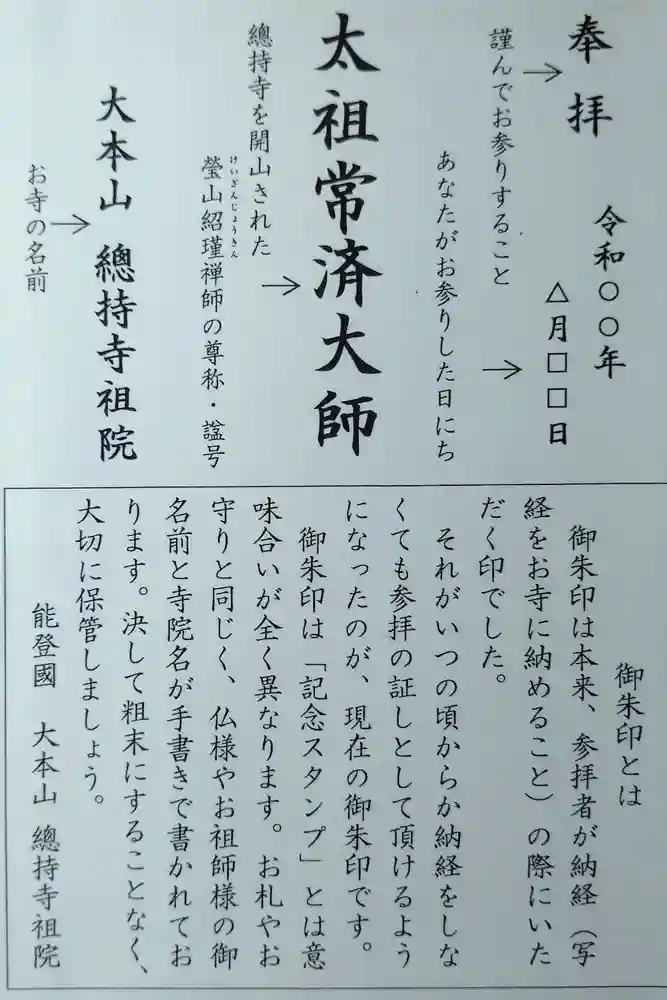 奉拝
令和〇〇年
△月□□日
謹んでお参りすること
あなたがお参りした日にち
太祖常済大師
總持寺を開山された
けいざんじょうきん
瑩山紹瑾禅師の尊称・諡号
大本山 總持寺祖院
お寺の名前
御朱印とは
御朱印は本来、参拝者が納経（写
経をお寺に納めること）の際にいた
だく印でした。
それがいつの頃からか納経をしな
くても参拝の証しとして頂けるよう
になったのが、現在の御朱印です。
御朱印は「記念スタンプ」とは意
味合いが全く異なります。お札やお
守りと同じく、仏様やお祖師様の御
名前と寺院名が手書きで書かれてお
ります。決して粗末にすることなく、
大切に保管しましょう。
能登國 大本山 總持寺祖院